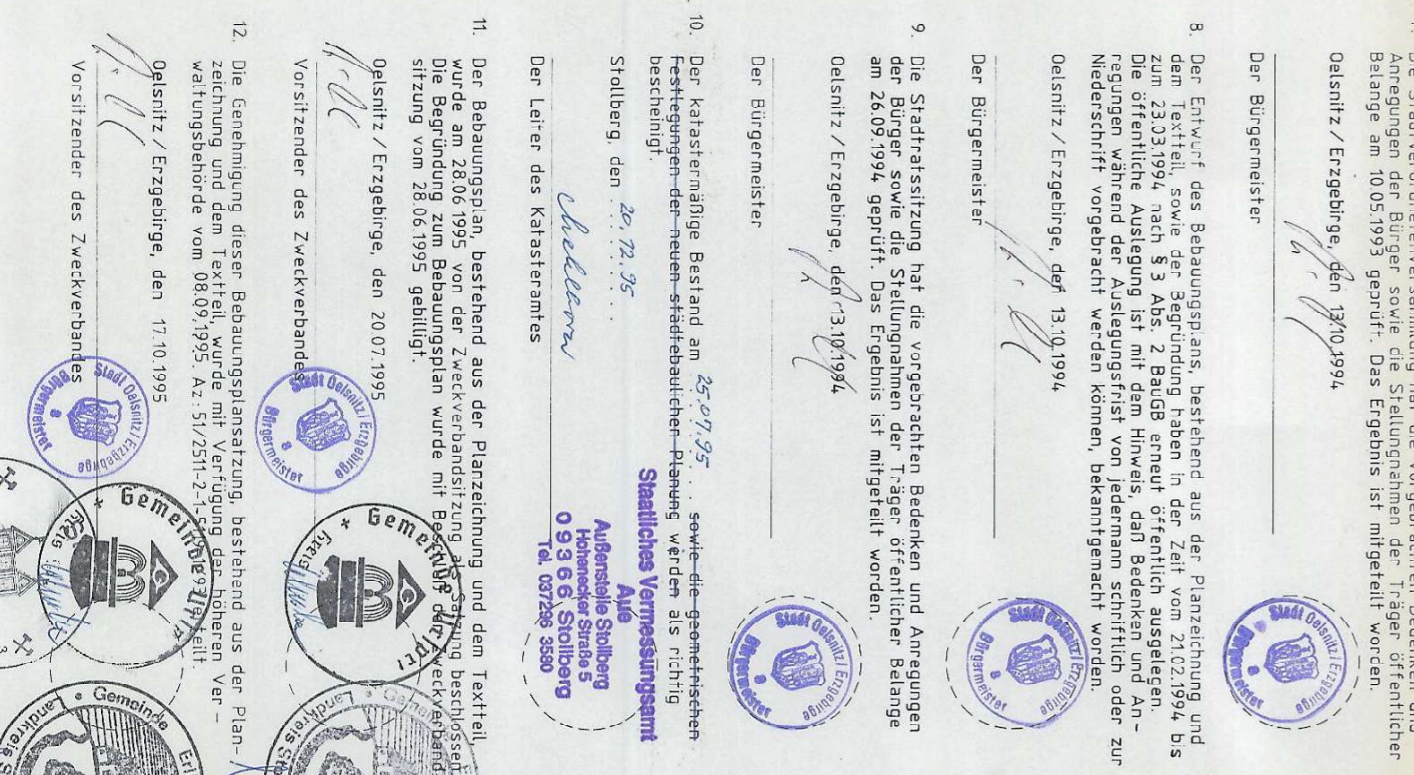 Anregungen der Bürger sowie die Stellungnahmen der Träger öffentlicher
Belange am 10.05.1993 geprüft. Das Ergebnis ist mitgeteilt worden.
Oelsnitz / Erzgebirge, den 13.10.1994
Der Bürgermeister
Stadt Oelsnitz / Erzgebirge
Bürgermeister
8
8. Der Entwurf des Bebauungsplans, bestehend aus der Planzeichnung und
dem Textteil, sowie der Begründung haben in der Zeit vom 21.02.1994 bis
zum 23.03.1994 nach § 3 Abs. 2 BauGB erneut öffentlich ausgelegen.
Die öffentliche Auslegung ist mit dem Hinweis, daß Bedenken und An-
regungen während der Auslegungsfrist von jedermann schriftlich oder zur
Niederschrift vorgebracht werden können, bekanntgemacht worden.
Oelsnitz / Erzgebirge, den 13.10.1994
Der Bürgermeister
Stadt Oelsnitz / Erzgebirge
Bürgermeister
8
9. Die Stadtratssitzung hat die vorgebrachten Bedenken und Anregungen
der Bürger sowie die Stellungnahmen der Träger öffentlicher Belange
am 26.09.1994 geprüft. Das Ergebnis ist mitgeteilt worden.
Oelsnitz / Erzgebirge, den 13.10.1994
Der Bürgermeister
Stadt Oelsnitz / Erzgebirge
Bürgermeister
8
10. Der katastermäßige Bestand am 25.07.95 . . sowie die geometrischen
Festlegungen der neuen städtebaulichen Planung werden als richtig
bescheinigt.
Stollberg, den 20.12.95
Der Leiter des Katasteramtes
Staatliches Vermessungsamt
Aue
Außenstelle Stollberg
Hohenecker Straße 5
09366 Stollberg
Tel. 037296 3580
11. Der Bebauungsplan, bestehend aus der Planzeichnung und dem Textteil
wurde am 28.06.1995 von der Zweckverbandsitzung als Satzung beschlossen.
Die Begründung zum Bebauungsplan wurde mit Beschluß der Zweckverband
sitzung vom 28.06.1995 gebilligt.
Oelsnitz / Erzgebirge, den 20.07.1995
Vorsitzender des Zweckverbandes
Stadt Oelsnitz / Erzgebirge
Bürgermeister
8
Gemeinde
Kreis
12. Die Genehmigung dieser Bebauungsplansatzung, bestehend aus der Plan-
zeichnung und dem Textteil, wurde mit Verfügung der höheren Ver-
waltungsbehörde vom 08.09.1995. Az.: 51/2511-2-1-
Oelsnitz / Erzgebirge, den 17.10.1995
Vorsitzender des Zweckverbandes
Stadt Oelsnitz / Erzgebirge
Bürgermeister
8
Gemeinde
Kreis
Gemeinde
Landkreis
Gemeinde
Landkreis